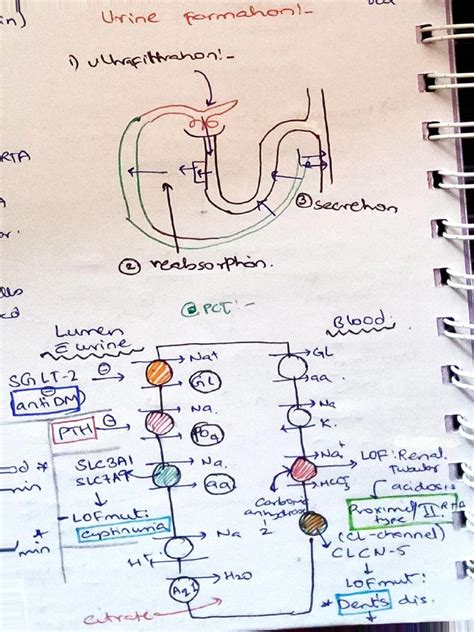 Urine formation:-
1) Ultrafiltration:-
RTA
③ secretion
② reabsorption.
② PCT:-
Lumen
Blood:
Ē urine
Na+
GL
SGLT-2
GL
aa
(anti DM)
Na.
Na
PTH
PO4
K.
SLC3A1
Na.
Na+
LOF: Renal
SLC7A9
aa
HCO3-
Tubular
acidosis
LOF mut:
Carbonic
Proximal/
RTA
cystinuria
anhydrase
type II
2
Na
(Cl-channel)
H+
CLCN-5
H2O
LOF mut:
Aq1
* Dent's dis.
citrate
min
min